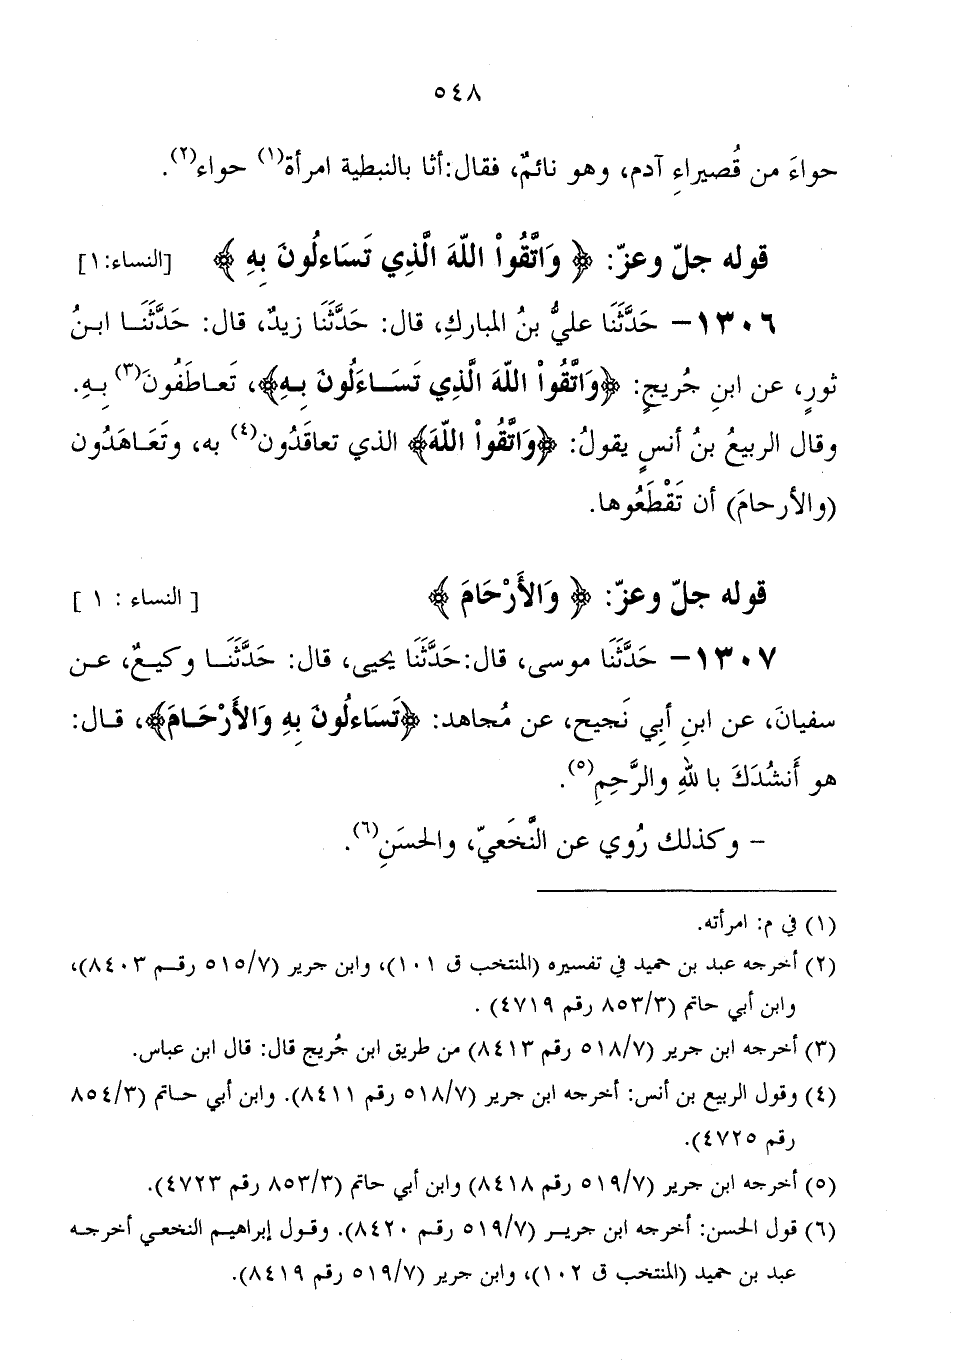 ٥٤٨
حواءَ من قُصيراءِ آدم، وهو نائمٌ، فقال:أثا بالنبطية امرأة(١) حواء(٢).
قوله جلّ وعزّ: ﴿ وَاتَّقُواْ اللّهَ الَّذِي تَسَاءلُونَ بِهِ ﴾ [النساء:١]
١٣٠٦- حَدَّثَنَا عليُّ بنُ المباركِ، قال: حَدَّثَنَا زيدٌ، قال: حَدَّثَنَـا ابـنُ
ثورٍ، عن ابنِ جُريجٍ: ﴿وَاتَّقُواْ اللّهَ الَّذِي تَسَـاءَلُونَ بِـهِ﴾، تَعـاطَفُونَ(٣) بِـهِ.
وقال الربيعُ بنُ أنسٍ يقولُ: ﴿وَاتَّقُواْ اللّهَ﴾ الذي تعاقَدُون(٤) به، وتَعَـاهَدُون
(والأرحامَ) أن تَقْطَعُوها.
قوله جلّ وعزّ: ﴿ وَالأَرْحَامَ ﴾ [ النساء : ١ ]
١٣٠٧- حَدَّثَنَا موسى، قال:حَدَّثَنَا يحيى، قال: حَدَّثَنَـا وكيـعٌ، عـن
سفيانَ، عن ابنِ أبي نَجيح، عن مُجاهد: ﴿تَسَاءلُونَ بِهِ وَالأَرْحَـامَ﴾، قـال:
هو أَنشُدَكَ باللهِ والرَّحِمِ(٥).
- وكذلك رُوي عن النَّخَعيّ، والحسَنِ(٦).
(١) في م: امرأته.
(٢) أخرجه عبد بن حميد في تفسيره (المنتخب ق ١٠١)، وابن جرير (٥١٥/٧ رقـم ٨٤٠٣)،
وابن أبي حاتم (٨٥٣/٣ رقم ٤٧١٩) .
(٣) أخرجه ابن جرير (٥١٨/٧ رقم ٨٤١٣) من طريق ابن جُريج قال: قال ابن عباس.
(٤) وقول الربيع بن أنس: أخرجه ابن جرير (٥١٨/٧ رقم ٨٤١١). وابن أبي حـاتم (٨٥٤/٣
رقم ٤٧٢٥).
(٥) أخرجه ابن جرير (٥١٩/٧ رقم ٨٤١٨) وابن أبي حاتم (٨٥٣/٣ رقم ٤٧٢٣).
(٦) قول الحسن: أخرجه ابن جريـر (٥١٩/٧ رقـم ٨٤٢٠). وقـول إبراهيـم النخعـي أخرجـه
عبد بن حميد (المنتخب ق ١٠٢)، وابن جرير (٥١٩/٧ رقم ٨٤١٩).